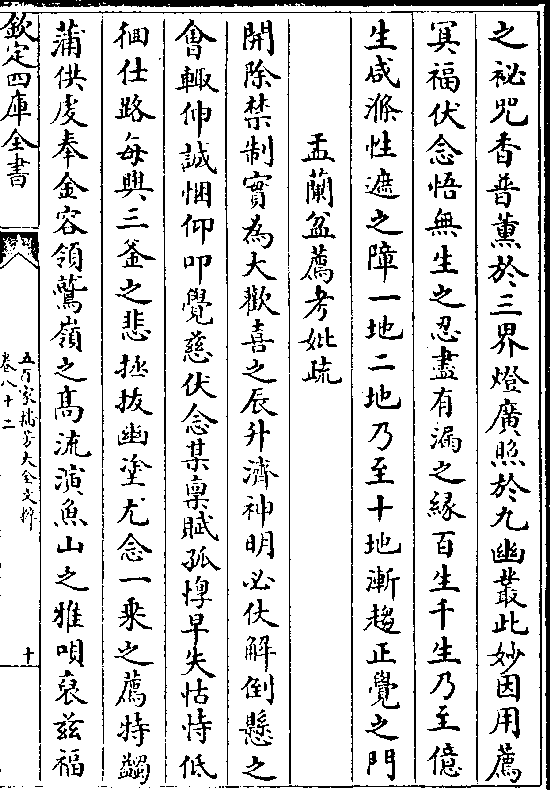 之祕咒香普薰於三界燈廣照於九幽叢此妙因用薦
冥福伏念悟無生之忍盡有漏之緣百生千生乃至億
生咸滌性遮之障一地二地乃至十地漸趨正覺之門
盂蘭盆薦考妣疏
開除禁制實為大歡喜之辰升濟神明必仗解倒懸之
會輙伸誠悃仰叩覺慈伏念某禀賦孤惸早失怙恃低
徊仕路每興三釜之悲拯拔幽塗尤念一乘之薦特蠲
蒲供虔奉金容領鷲嶺之高流演魚山之雅唄裒兹福
欽定四庫全書
五百家播芳大全文粹
卷八十二
十